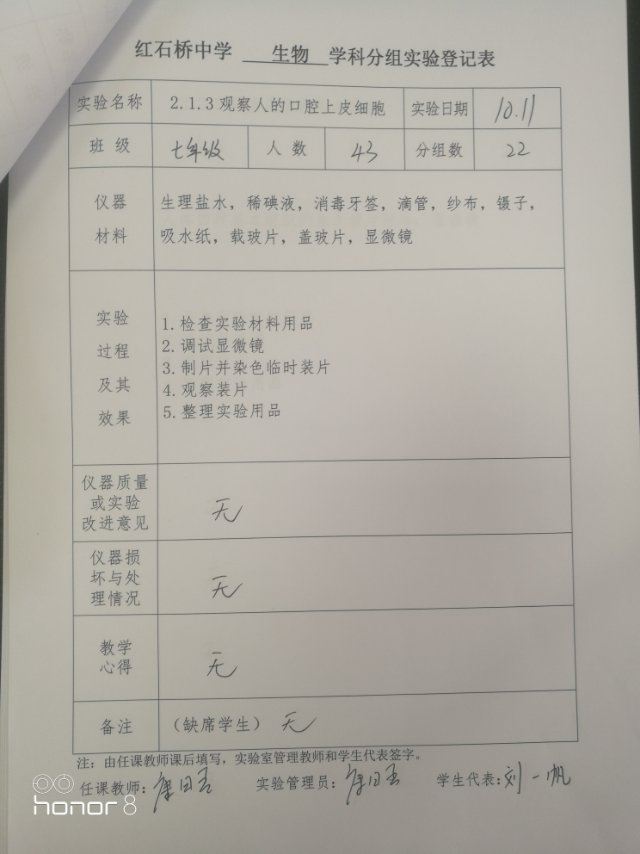 红石桥中学 生物 学科分组实验登记表
实验名称 2.1.3观察人的口腔上皮细胞 实验日期 10.11
班 级 七年级 人 数 43 分组数 22
仪器 材料 生理盐水，稀碘液，消毒牙签，滴管，纱布，镊子，
吸水纸，载玻片，盖玻片，显微镜
实验
过程
及其
效果
1.检查实验材料用品
2.调试显微镜
3.制片并染色临时装片
4.观察装片
5.整理实验用品
仪器质量
或实验
改进意见
无
仪器损
坏与处
理情况
无
教学
心得
无
备注 （缺席学生） 无
注：由任课教师课后填写，实验室管理教师和学生代表签字。
任课教师： 实验管理员： 学生代表：刘一帆
honor 8